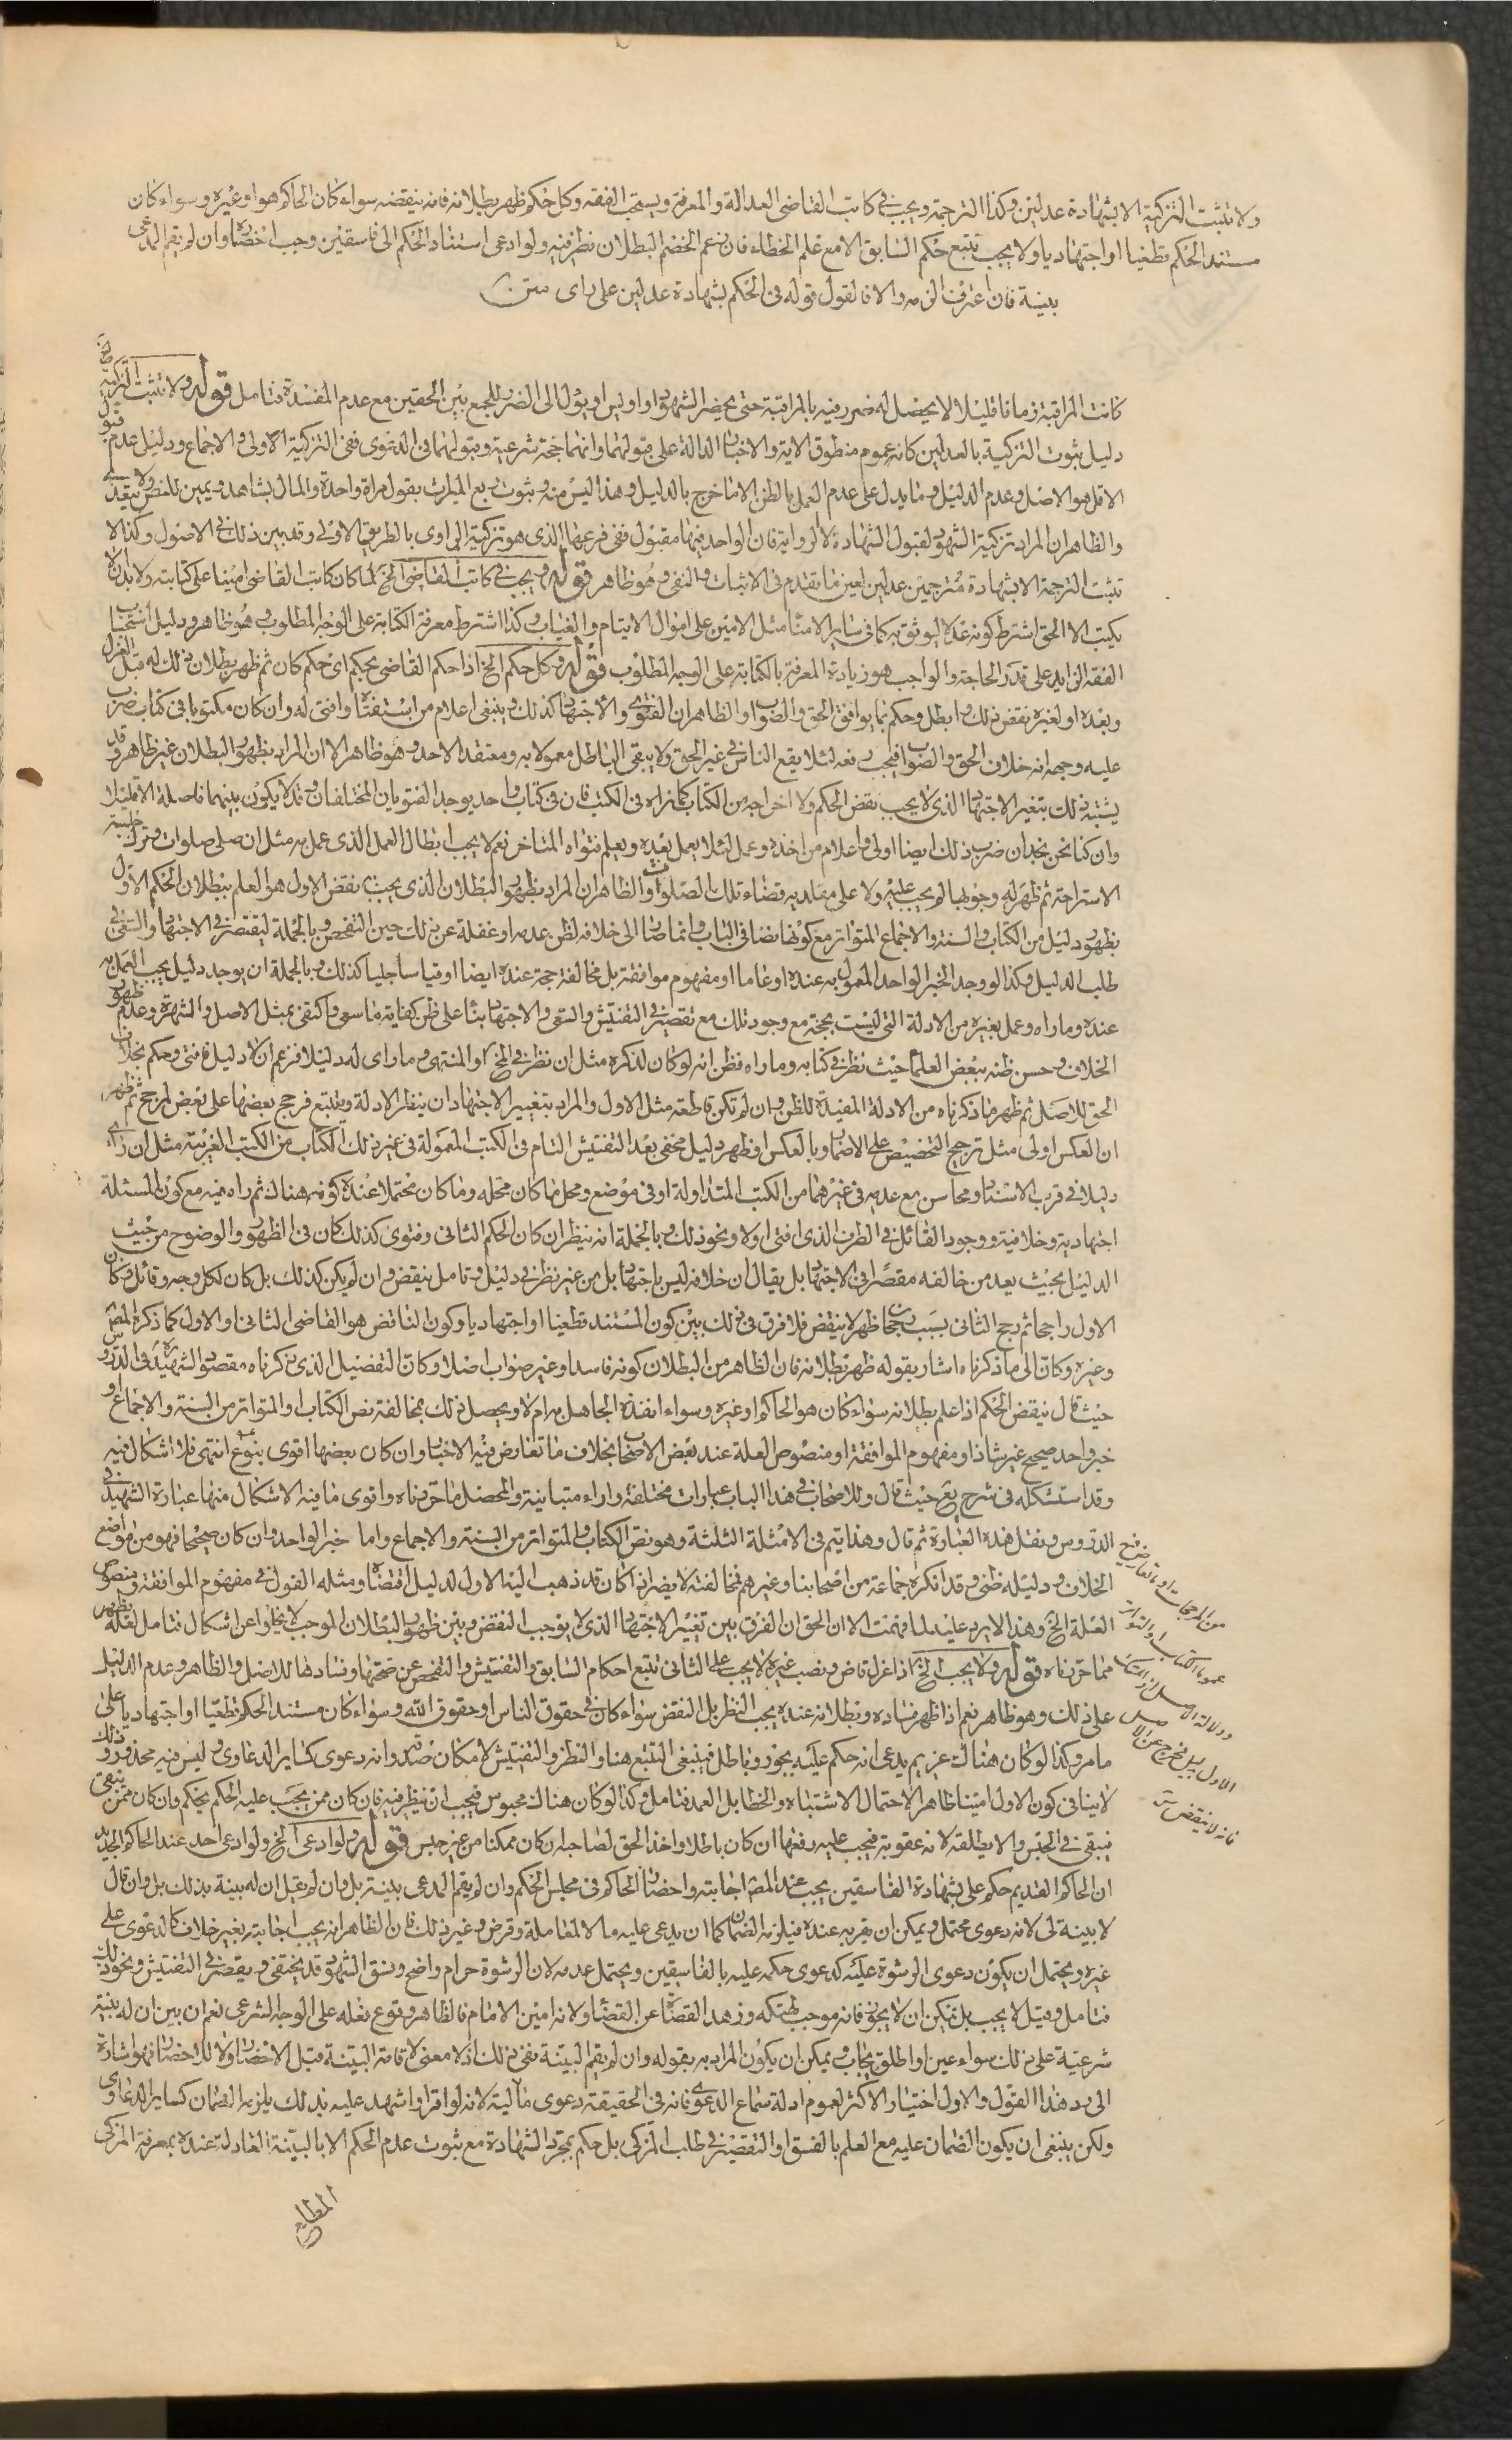 ولا تثبت التزكية الا بشهادة عدلين وكذا الترجمة ويجب في كاتب القاضي العدالة والمعرفة ويستحب الفقه وكل حكم ظهر بطلانه فانه ينقضه سواء كان الحاكم هو او غيره وسواء كان
مستند الحكم قطعيا او اجتهاديا ولا يجب تتبع حكم السابق الا مع علم الخطاء فان زعم الخصم البطلان نظر فيه ولو ادعى استناد الحكم الى فاسقين وجب احضاره وان لم يقم المدعي
بينة فان اعترف الزمه والا فالقول قوله في الحكم بشهادة عدلين على راى متن
كانت المراقبة زمانا قليلا لا يحصل له ضرر فيه بالمراقبة حتى يحضر الشهود او اوليس او يؤل الى الضرر للجمع بين الحقين مع عدم المفسدة فتامل قوله ولا تثبت التزكية الخ
دليل ثبوت التزكية بالعدلين كانه عموم منطوق الاية والاخبار الدالة على قبولهما وانهما حجة شرعية وقبولهما في الدعوى ففي التزكية الاولى والاجماع ودليل عدم قبول
الاقل هو الاصل وعدم الدليل وما يدل على عدم العمل بالظن الا ما خرج بالدليل وهذا ليس منه وثبوت ربع الميراث بقول امراة واحدة والمال بشاهد ويمين للنص ولا يتعدى
والظاهر ان المراد تزكية الشهود لقبول الشهادة لا الرواية فان الواحد فيها مقبول ففي فرعها الذي هو تزكية الراوى بالطريق الاولى وقد بين ذلك في الاصول وكذا لا
تثبت الترجمة الا بشهادة مترجمين عدلين لعين ما تقدم في الاثبات والنفي وهو ظاهر قوله ويجب في كاتب القاضي الخ لما كان كاتب القاضي امينا على كتابته ولا بد ان لا
يكتب الا الحق اشترط كونه عدلا ليوثق به كما في ساير الامناء مثل الامين على اموال الايتام والغياب وكذا اشترط معرفة الكتابة على الوجه المطلوب وهو ظاهر ودليل استحباب
الفقه الزايد على قدر الحاجة والواجب هو زيادة المعرفة بالكتابة على الوجه المطلوب قوله وكل حكم الخ اذا حكم القاضي بحكم اى حكم كان ثم ظهر بطلان ذلك له قبل العزل
وبعده او لغيره نقض ذلك وابطل وحكم بما يوافق الحق والصواب والظاهر ان الفتوى والاجتهاد كذلك وينبغي اعلام من استفتاه وافتى له وان كان مكتوبا في كتاب ضرب
عليه وجهه انه خلاف الحق والصواب فيجب دفعه لئلا يقع الناس في غير الحق ولا يبقى الباطل معمولا به ومعتقد الاحد وهو ظاهر الا ان المراد بظهور البطلان غير ظاهر وقد
يشتبه ذلك بتغير الاجتهاد الذي لا يجب نقض الحكم ولا اخراجه من الكتاب كما نراه في الكتب فان في كتاب واحد يوجد الفتويان المختلفان وقد لا يكون بينهما فاصلة الا قليلا
وان كنا نحن نجد ان ضرب ذلك ايضا اولى واعلام من اخذه وعمل لئلا يعمل بعده ويعلم فتواه المتاخر نعم لا يجب ابطال العمل الذي عمل به مثل ان صلى صلوات وترك جلسة
الاستراحة ثم ظهر له وجوبها لم يجب عليه ولا على مقلديه قضاء تلك الصلوات والظاهر ان المراد بظهور البطلان الذي يجب نقض الاول هو العلم ببطلان الحكم الاول
بظهور دليل من الكتاب والسنة والاجماع المتواتر مع كونها نصا في الباب وانما صار الى خلافه لظن عدمه او غفلة عن ذلك حين التفحص وبالجملة ليقتصر في الاجتهاد والسعي في
طلب الدليل وكذا لو وجد الخبر الواحد المعمول به عنده او عاما او مفهوم موافقة بل مخالفة حجة عنده ايضا او قياسا جليا كذلك وبالجملة ان يوجد دليل يجب العمل به
عنده وما راه وعمل بغيره من الادلة التي ليست بحجة مع وجود تلك مع تقصير في التفتيش والسعي والاجتهاد بناء على ظن كفاية ما سعى واكتفى بمثل الاصل والشهرة وعدم ظهور
الخلاف وحسن ظنه ببعض العلماء حيث نظر في كتابه وما راه فظن انه لو كان لذكره مثل ان نظر في المخ او المنتهى وما راى له دليلا فزعم ان لا دليل فافتى وحكم بخلاف
الحق للاصل ثم ظهر ما ذكرناه من الادلة المفيدة للظن وان لم تكن قاطعة مثل الاول والمراد بتغيير الاجتهاد ان ينظر الادلة ويتتبع فرجح بعضها على بعض لمرجح ثم ظهر
ان العكس اولى مثل ترجيح التخصيص على الاضمار وبالعكس او ظهر دليل مخفي بعد التفتيش التام في الكتب المعمولة في غير ذلك الكتاب من الكتب الغريبة مثل ان راى
دليلا في قرب الاسناد ومحاسن مع عدمه في غيرهما من الكتب المتداولة او في موضع ومحل ما كان محله وما كان محتملا عنده كونه هناك ثم راه فيه مع كون المسئلة
اجتهادية وخلافية ووجود القائل في الطرف الذي افتى اولا ونحو ذلك وبالجملة انه ينظر ان كان الحكم الثاني وفتوى كذلك كان في الظهور والوضوح من حيث
الدليل بحيث يعد من خالفه مقصرا في الاجتهاد بل يقال ان خلافه ليس باجتهاد بل من غير نظر في دليل وتامل ينقض وان لم يكن كذلك بل كان لكل وجه وقائل وكان
الاول راجحا ثم رجح الثاني بسبب رجحان ظهر لا ينقض فلا فرق في ذلك بين كون المستند قطعيا او اجتهاديا وكون الناقض هو القاضي الثاني او الاول كما ذكره المص
وغيره وكان الى ما ذكرناه اشار بقوله ظهر بطلانه فان الظاهر من البطلان كونه فاسدا وغير صواب اصلا وكان التفصيل الذي ذكرناه مقصود الشهيد ره في الدروس
حيث قال ينقض الحكم اذا علم بطلانه سواء كان هو الحاكم او غيره وسواء انفذه الجاهل به ام لا ويحصل ذلك بمخالفة نص الكتاب او المتواتر من السنة والاجماع او
خبر واحد صحيح غير شاذ او مفهوم الموافقة او منصوص العلة عند بعض الاصحاب بخلاف ما تعارض فيه الاخبار وان كان بعضها اقوى بنوع ما انتهى فلا اشكال فيه
وقد استشكله في شرح يع حيث قال وللاصحاب في هذا الباب عبارات مختلفة واراء متباينة والمحصل ما حررناه واقوى ما فيه الاشكال منها عبارة الشهيد في
الدروس ونقل هذه العبارة ثم قال وهذا يتم في الامثلة الثلثة وهو نص الكتاب والمتواتر من السنة والاجماع واما خبر الواحد وان كان صحيحا فهو من مواضع
الخلاف ودليله ظني وقد انكره جماعة من اصحابنا وغيرهم فمخالفته لا يضر اذا كان قد ذهب اليه الاول لدليل اقتضاه ومثله القول في مفهوم الموافقة ومنصوص
العلة الخ وهذا لا يرد عليه لما فهمت الا ان الحق ان الفرق بين تغيير الاجتهاد الذي لا يوجب النقض وبين ظهور البطلان الموجب لا يخلوا عن اشكال فتامل لعله يظهر
مما حررناه قوله ولا يجب الخ اذا عزل قاض ونصب غيره لا يجب على الثاني تتبع احكام السابق والتفتيش والتفحص عن صحتها وفسادها للاصل والظاهر وعدم الدليل
على ذلك وهو ظاهر نعم اذا ظهر فساده وبطلانه عنده يجب النظر بل النقض سواء كان في حقوق الناس او حقوق الله وسواء كان مستند الحكم قطعيا او اجتهاديا على
ما مر وكذا لو كان هناك غريم يدعى انه حكم عليه بجور وباطل فينبغي التتبع هنا والنظر والتفتيش لامكان صدقه وانه دعوى كساير الدعاوى وليس فيه محذور وذلك
لا ينافي كون الاول امينا ظاهرا لاحتمال الاشتباه والخطا بل العمد فتامل وكذا لو كان هناك محبوس فيجب ان ينظر فيه فان كان ممن يجب عليه الحكم يحكم وان كان ممن ينبغي
يبقى في الحبس والا يطلقه لانه عقوبة فيجب عليه رفعها ان كان باطلا واخذ الحق لصاحبه ان كان ممكنا من غير حبس قوله ولو ادعى الخ ولو ادعى احد عند الحاكم الجديد
ان الحاكم القديم حكم على بشهادة الفاسقين يجب عند المص اجابته واحضار الحاكم في مجلس الحكم وان لم يقم المدعى بينة بل وان لم يقل ان له بينة بذلك بل وان قال
لا بينة لي لانه دعوى محتمل ويمكن ان يقر به عنده فيلزمه الضمان كما ان يدعى عليه مالا لمعاملة وقرض وغير ذلك فان الظاهر انه يجب اجابته بغير خلاف كالدعوى على
غيره ويحتمل ان يكون دعوى الرشوة عليه كدعوى حكمه عليه بالفاسقين ويحتمل عدمه لان الرشوة حرام واضح وفسق الشهود قد يختفى ويقصر في التفتيش ونحو ذلك
فتامل وقيل لا يجب بل يمكن ان لا يجوز فانه موجب لهتكه وزهد القضاة عن القضاء ولانه امين الامام فالظاهر وقوع فعله على الوجه الشرعي نعم ان بين ان له بينة
شرعية على ذلك سواء عين او اطلق يجاب ويمكن ان يكون المراد به بقوله وان لم يقم البينة نفى ذلك اذ لا معنى لاقامة البينة قبل الاحضار ولا للاحضار فهو اشارة
الى رد هذا القول والاول اختيار الاكثر لعموم ادلة سماع الدعوى فانه في الحقيقة دعوى مالية لانه لو اقر او اشهد عليه بذلك يلزمه الضمان كساير الدعاوى
ولكن ينبغي ان يكون الضمان عليه مع العلم بالفسق او التقصير في طلب المزكى بل حكم بمجرد الشهادة مع ثبوت عدم الحكم الا بالبينة العادلة عنده بمعرفة المزكى
من المرجحات او بالتعارض في
عموما الكتاب والتواتر
ودلالة الاصل
الاول بدليل مخرج عن الاصل
فانه لا ينقض